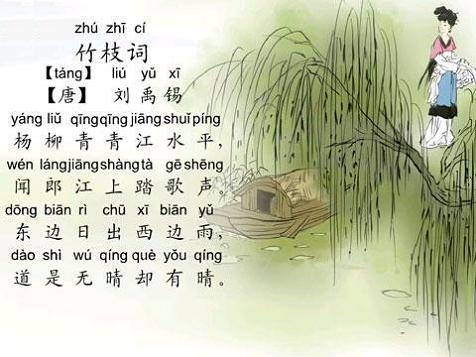 zhú zhī cí
竹枝词
【táng】 liú yǔ xī
【唐】 刘禹锡
yáng liǔ qīng qīng jiāng shuǐ píng
杨柳青青江水平，
wén láng jiāng shàng tà gē shēng
闻郎江上踏歌声。
dōng biān rì chū xī biān yǔ
东边日出西边雨，
dào shì wú qíng què yǒu qíng
道是无晴却有晴。